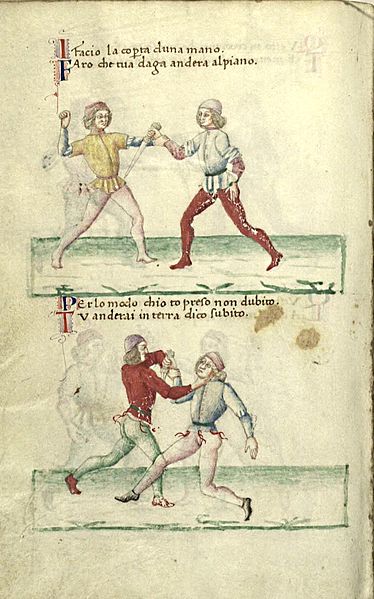 I facio la cop̱ta duna mano.
FAro che tua daga andera alpiano.
PErlo modo chio to preso non dubito.
TV anderai in terra dico subito.